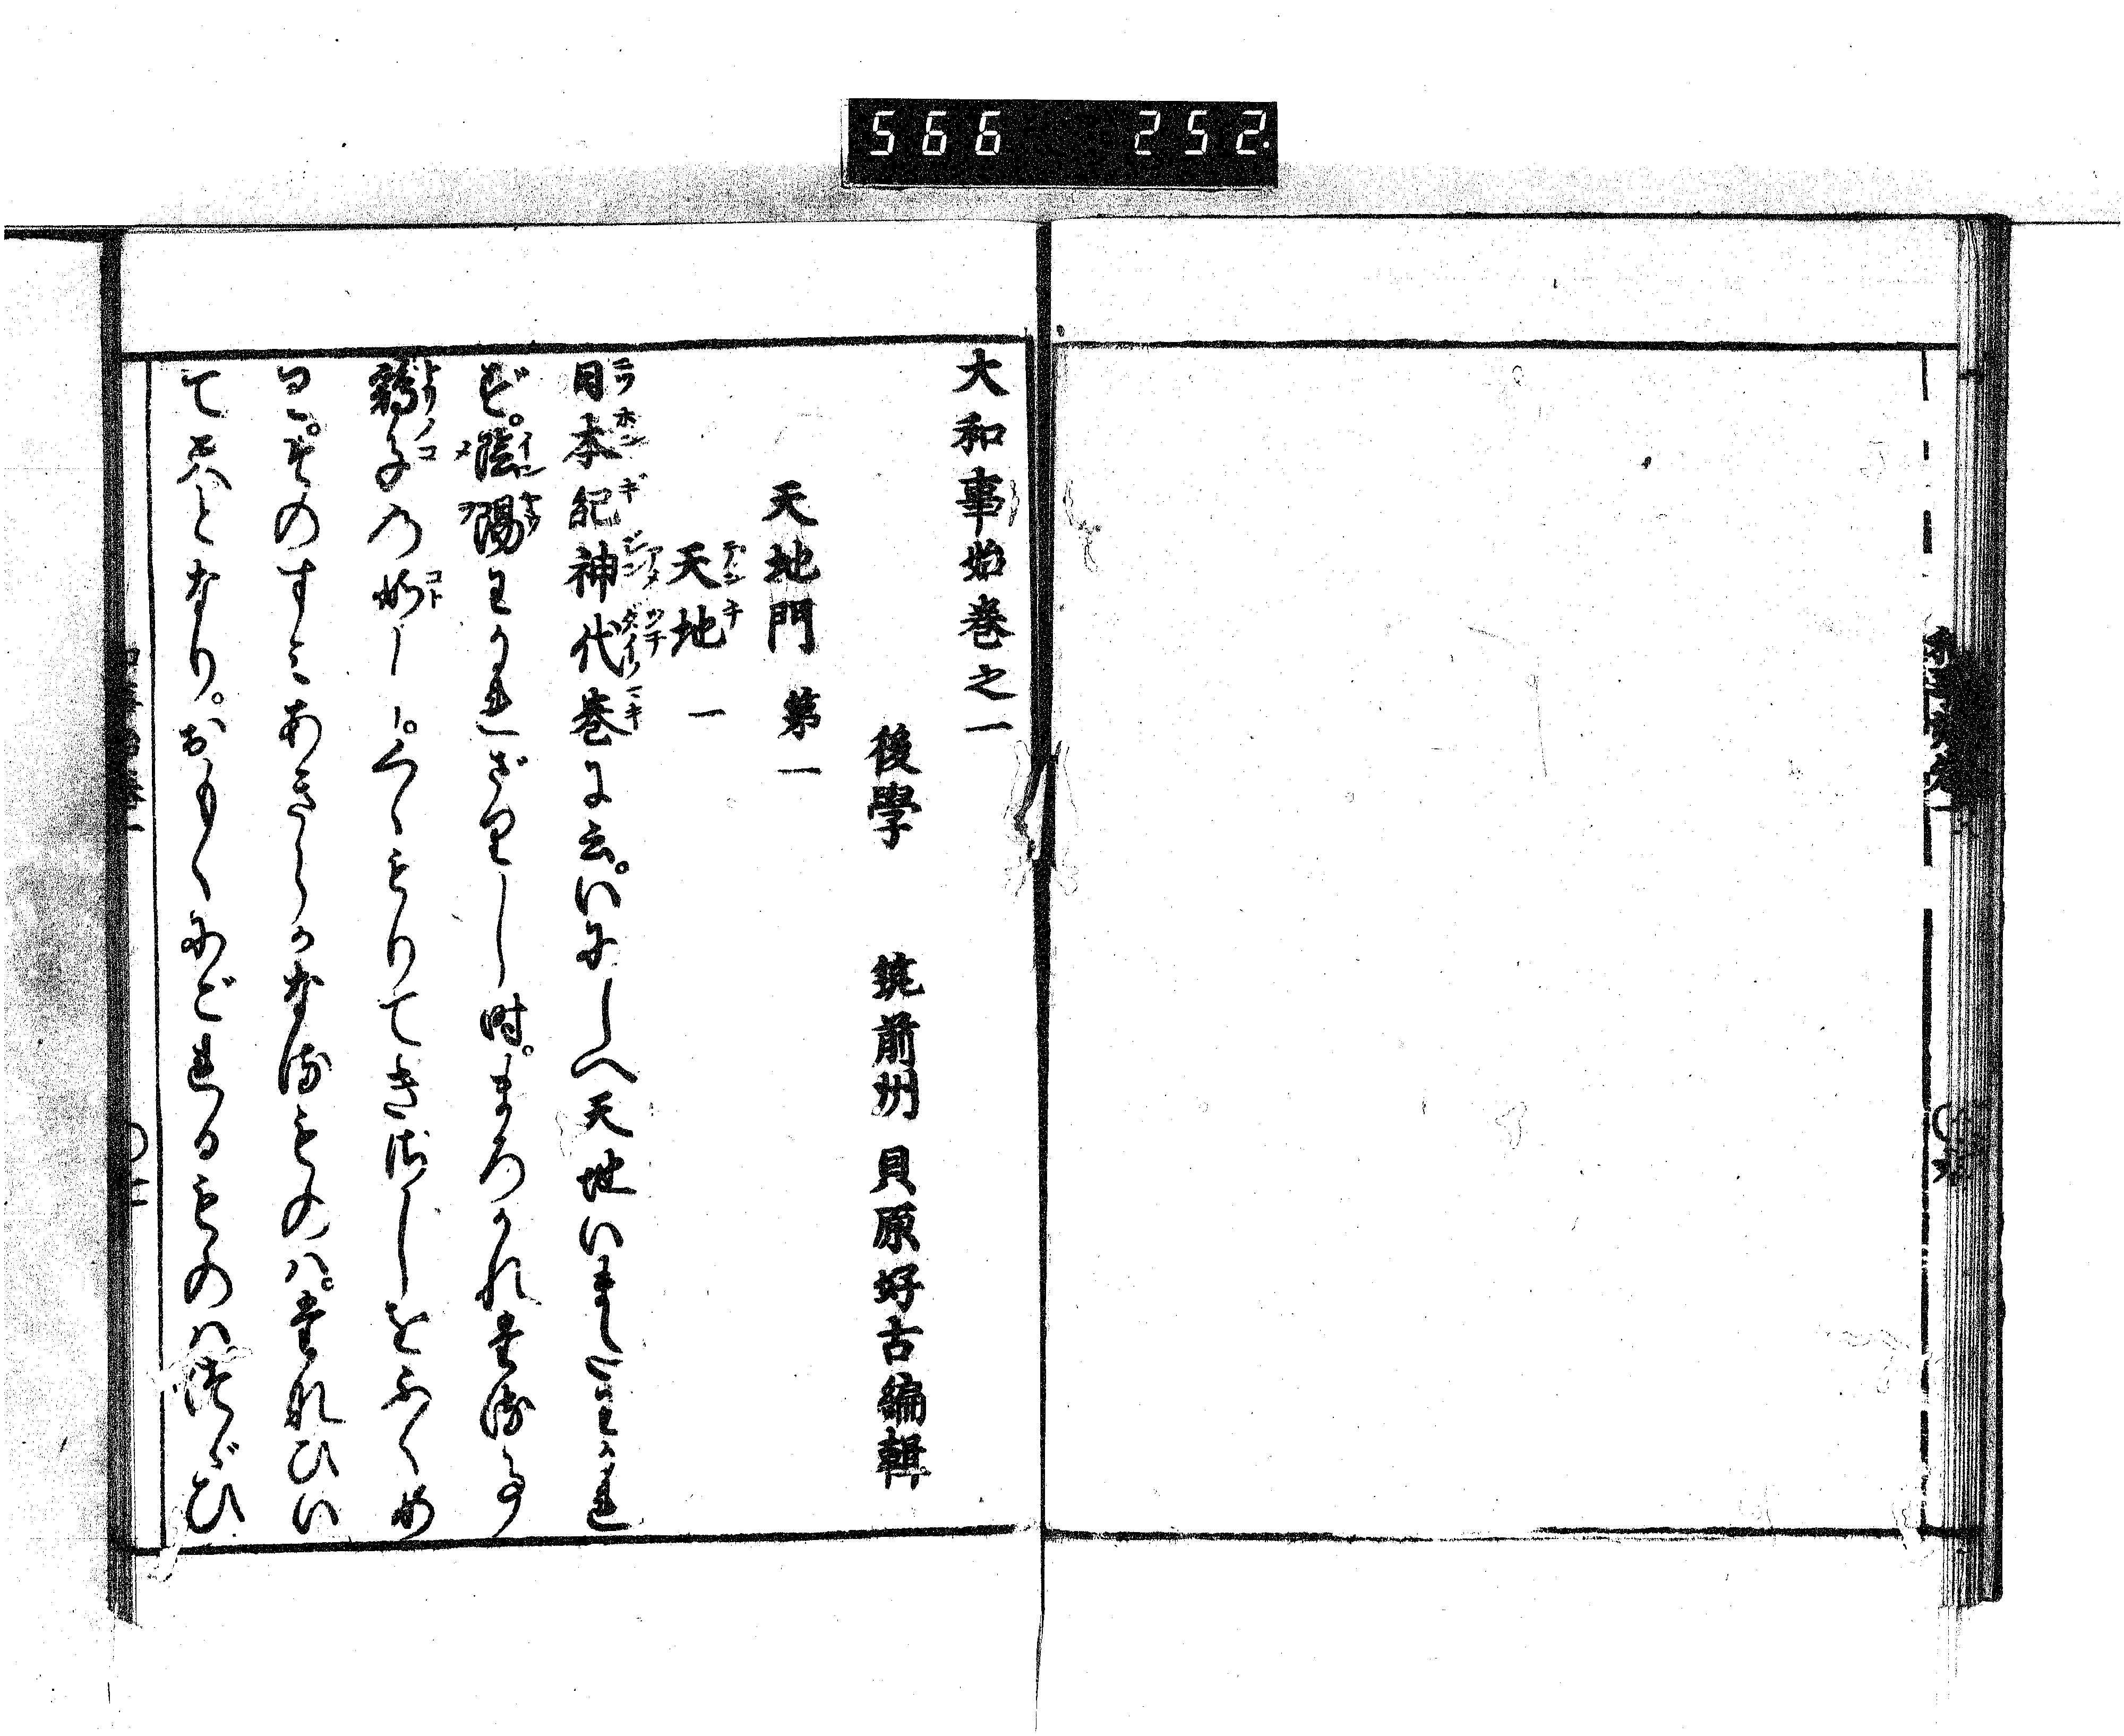 566 252
大和事始巻之一
後學 筑前州 貝原好古編輯
天地門 第一
天地 一
日本紀神代巻に云。いにしへ天地いまだわかれ
ず。陰陽わかれざりし時。まろかれたる事
鶏子の如し。くゝもりてきざしをふくめ
り。そのすみあきらかなるものは。たなびい
て天となり。おもくにごれるものはつゞひ